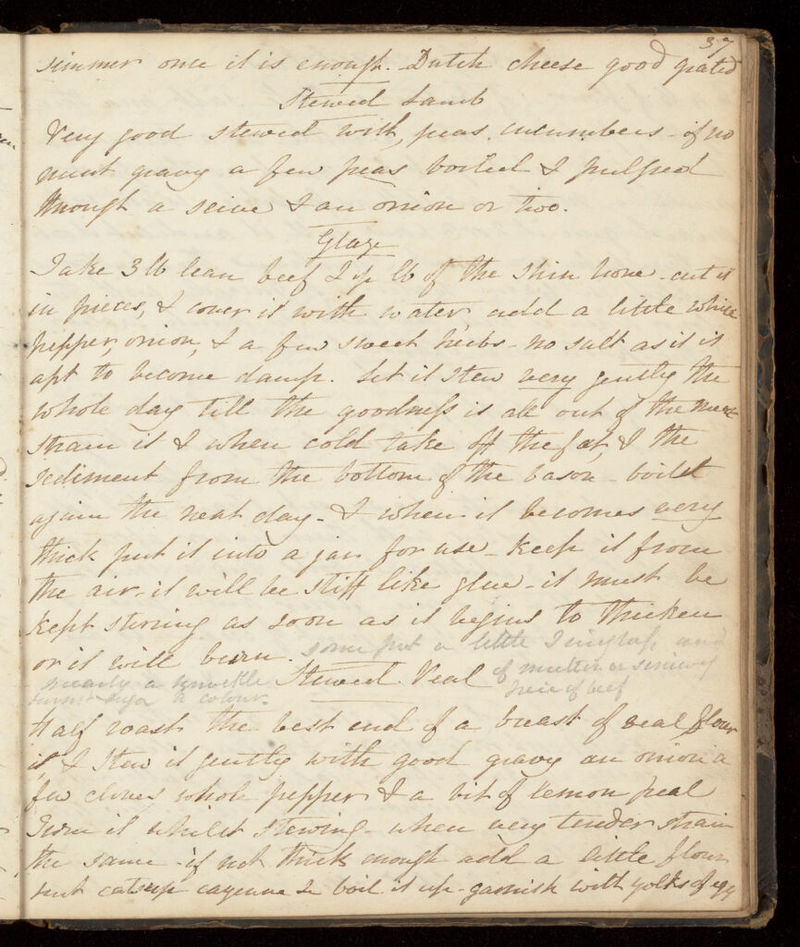 37
simmer once it is enough. Dutch cheese good grated
Stewed Lamb
Very good stewed with, peas. cucumbers - if no
mint gravy a few peas boiled & pulped
through a seive & an onion or two.
Glaze
Take 3 lb lean beef 2 lb of the shin bone - cut it
in pieces, & cover it with water add a little white
pepper, onion, & a few sweet herbs - no salt as it is
apt to become damp. Let it stew very gently the
whole day till the goodness is all out of the meat
strain it & when cold take off the fat, & the
sediment from the bottom of the bason - boil it
again the next day - & when it becomes very
thick put it into a jar for use - keep it from
the air - it will be stiff like glue - it must be
kept stirring as soon as it begins to thicken
or it will burn. some put a little Isinglass and
a knuckle of mutton or sinewy
burnt sugar to colour. piece of beef
Stewed Veal
Half roast the best end of a breast of veal flour
it, & stew it gently with good gravy an onion a
few cloves whole pepper & a bit of lemon peal
Turn it whilst stewing - when very tender strain
the same - if not thick enough add a little flour
catsup cayenne & boil it up - garnish with yolks of egg